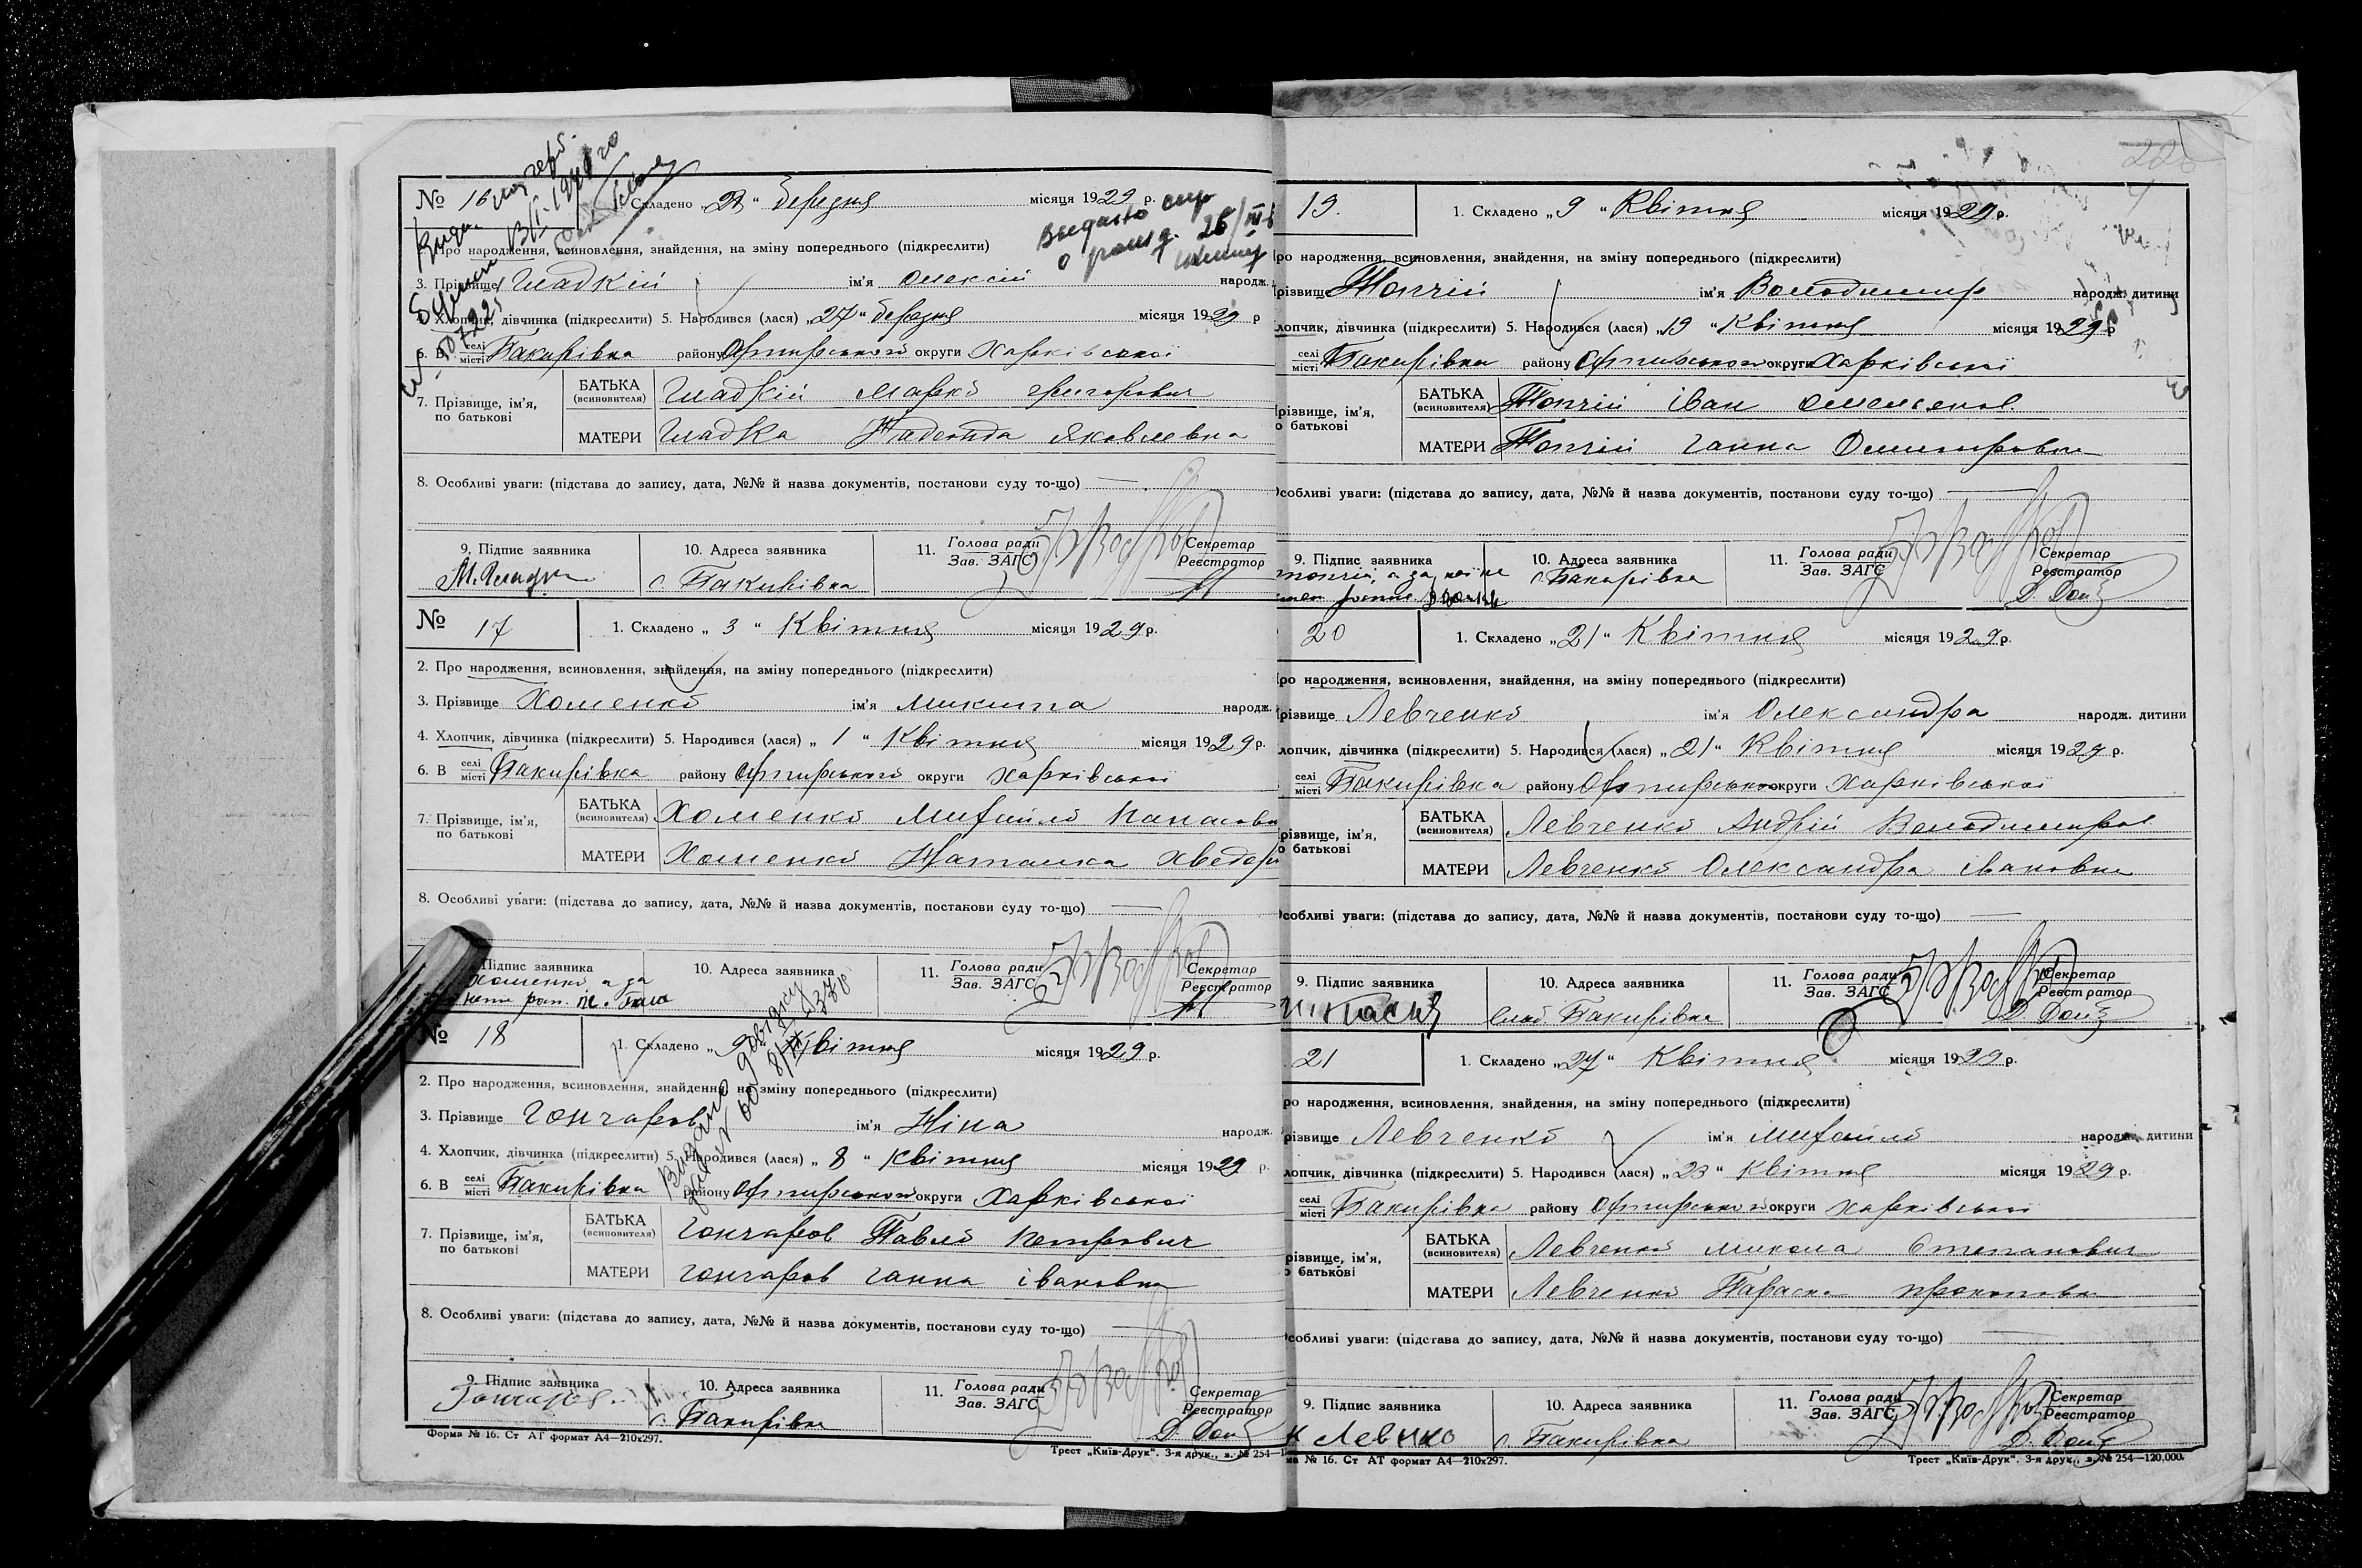 № 16
Складено „28“ березня місяця 1929 р.
2. Про народження, всиновлення, знайдення, на зміну попереднього (підкреслити)
3. Прізвище Гладкій ім'я Олексій народж.
Хлопчик, дівчинка (підкреслити) 5. Народився (лася) „27“ березня місяця 1929 р
6. В селі місті Бакирівка району Охтирського округи Харківської
7. Прізвище, ім'я, по батькові
БАТЬКА (всиновителя) Гладкій Марко Григорович
МАТЕРИ Гладка Надежда Яковлевна
8. Особливі уваги: (підстава до запису, дата, №№ й назва документів, постанови суду то-що) —
9. Підпис заявника 10. Адреса заявника 11. Голова ради Зав. ЗАГС Секретар Реєстратор
М. Гладк с. Бакирівка
№ 17
1. Складено „3“ Квітня місяця 1929 р.
2. Про народження, всиновлення, знайдення, на зміну попереднього (підкреслити)
3. Прізвище Хоменко ім'я Микита народж.
4. Хлопчик, дівчинка (підкреслити) 5. Народився (лася) „1“ Квітня місяця 1929 р.
6. В селі місті Бакирівка району Охтирського округи Харківської
7. Прізвище, ім'я, по батькові
БАТЬКА (всиновителя) Хоменко Михайло Панасови
МАТЕРИ Хоменко Наталка Хведор
8. Особливі уваги: (підстава до запису, дата, №№ й назва документів, постанови суду то-що) —
Підпис заявника 10. Адреса заявника 11. Голова ради Зав. ЗАГС Секретар Реєстратор
Хоменко, а за
№ 18
1. Складено „9“ Квітня місяця 1929 р.
2. Про народження, всиновлення, знайдення, на зміну попереднього (підкреслити)
3. Прізвище Гончаров ім'я Ніна народж.
4. Хлопчик, дівчинка (підкреслити) 5. Народився (лася) „8“ Квітня місяця 1929 р.
6. В селі місті Бакирівка району Охтирського округи Харківської
7. Прізвище, ім'я, по батькові
БАТЬКА (всиновителя) Гончаров Павло Петрович
МАТЕРИ Гончаров Ганна Івановна
8. Особливі уваги: (підстава до запису, дата, №№ й назва документів, постанови суду то-що) —
9. Підпис заявника 10. Адреса заявника 11. Голова ради Зав. ЗАГС Секретар Реєстратор
Гончаров с. Бакирівка
Форма № 16. Ст АТ формат А4—210х297.
Трест „Київ-Друк“. 3-я друк., з. № 254—1
19.
1. Складено „9“ Квітня місяця 1929 р.
ро народження, всиновлення, знайдення, на зміну попереднього (підкреслити)
різвище Топчій ім'я Володимир народж. дитини
лопчик, дівчинка (підкреслити) 5. Народився (лася) „19“ Квітня місяця 1929 р
селі місті Бакирівка району Охтирського округи Харківської
різвище, ім'я, о батькові
БАТЬКА (всиновителя) Топчій Іван Омелянов.
МАТЕРИ Топчій Ганна Дмитровна
собливі уваги: (підстава до запису, дата, №№ й назва документів, постанови суду то-що) —
9. Підпис заявника 10. Адреса заявника 11. Голова ради Зав. ЗАГС Секретар Реєстратор
с. Бакирівка
20
1. Складено „21“ Квітня місяця 1929 р.
ро народження, всиновлення, знайдення, на зміну попереднього (підкреслити)
різвище Левченко ім'я Олександра народж. дитини
лопчик, дівчинка (підкреслити) 5. Народився (лася) „21“ Квітня місяця 1929 р.
селі місті Бакирівка району Охтирського округи Харківської
різвище, ім'я, о батькові
БАТЬКА (всиновителя) Левченко Андрій Володимиров
МАТЕРИ Левченко Олександра Івановна
собливі уваги: (підстава до запису, дата, №№ й назва документів, постанови суду то-що) —
9. Підпис заявника 10. Адреса заявника 11. Голова ради Зав. ЗАГС Секретар Реєстратор
слоб. Бакирівка
21
1. Складено „27“ Квітня місяця 1929 р.
ро народження, всиновлення, знайдення, на зміну попереднього (підкреслити)
різвище Левченко ім'я Михайло народж. дитини
лопчик, дівчинка (підкреслити) 5. Народився (лася) „23“ Квітня місяця 1929 р.
селі місті Бакирівка району Охтирського округи Харківської
різвище, ім'я, о батькові
БАТЬКА (всиновителя) Левченко Микола Степанович
МАТЕРИ Левченко Параска Прокоповна
собливі уваги: (підстава до запису, дата, №№ й назва документів, постанови суду то-що) —
9. Підпис заявника 10. Адреса заявника 11. Голова ради Зав. ЗАГС Секретар Реєстратор
с. Бакирівка
ма № 16. Ст АТ формат А4—210х297.
Трест „Київ-Друк“. 3-я друк., з. № 254—120,000.